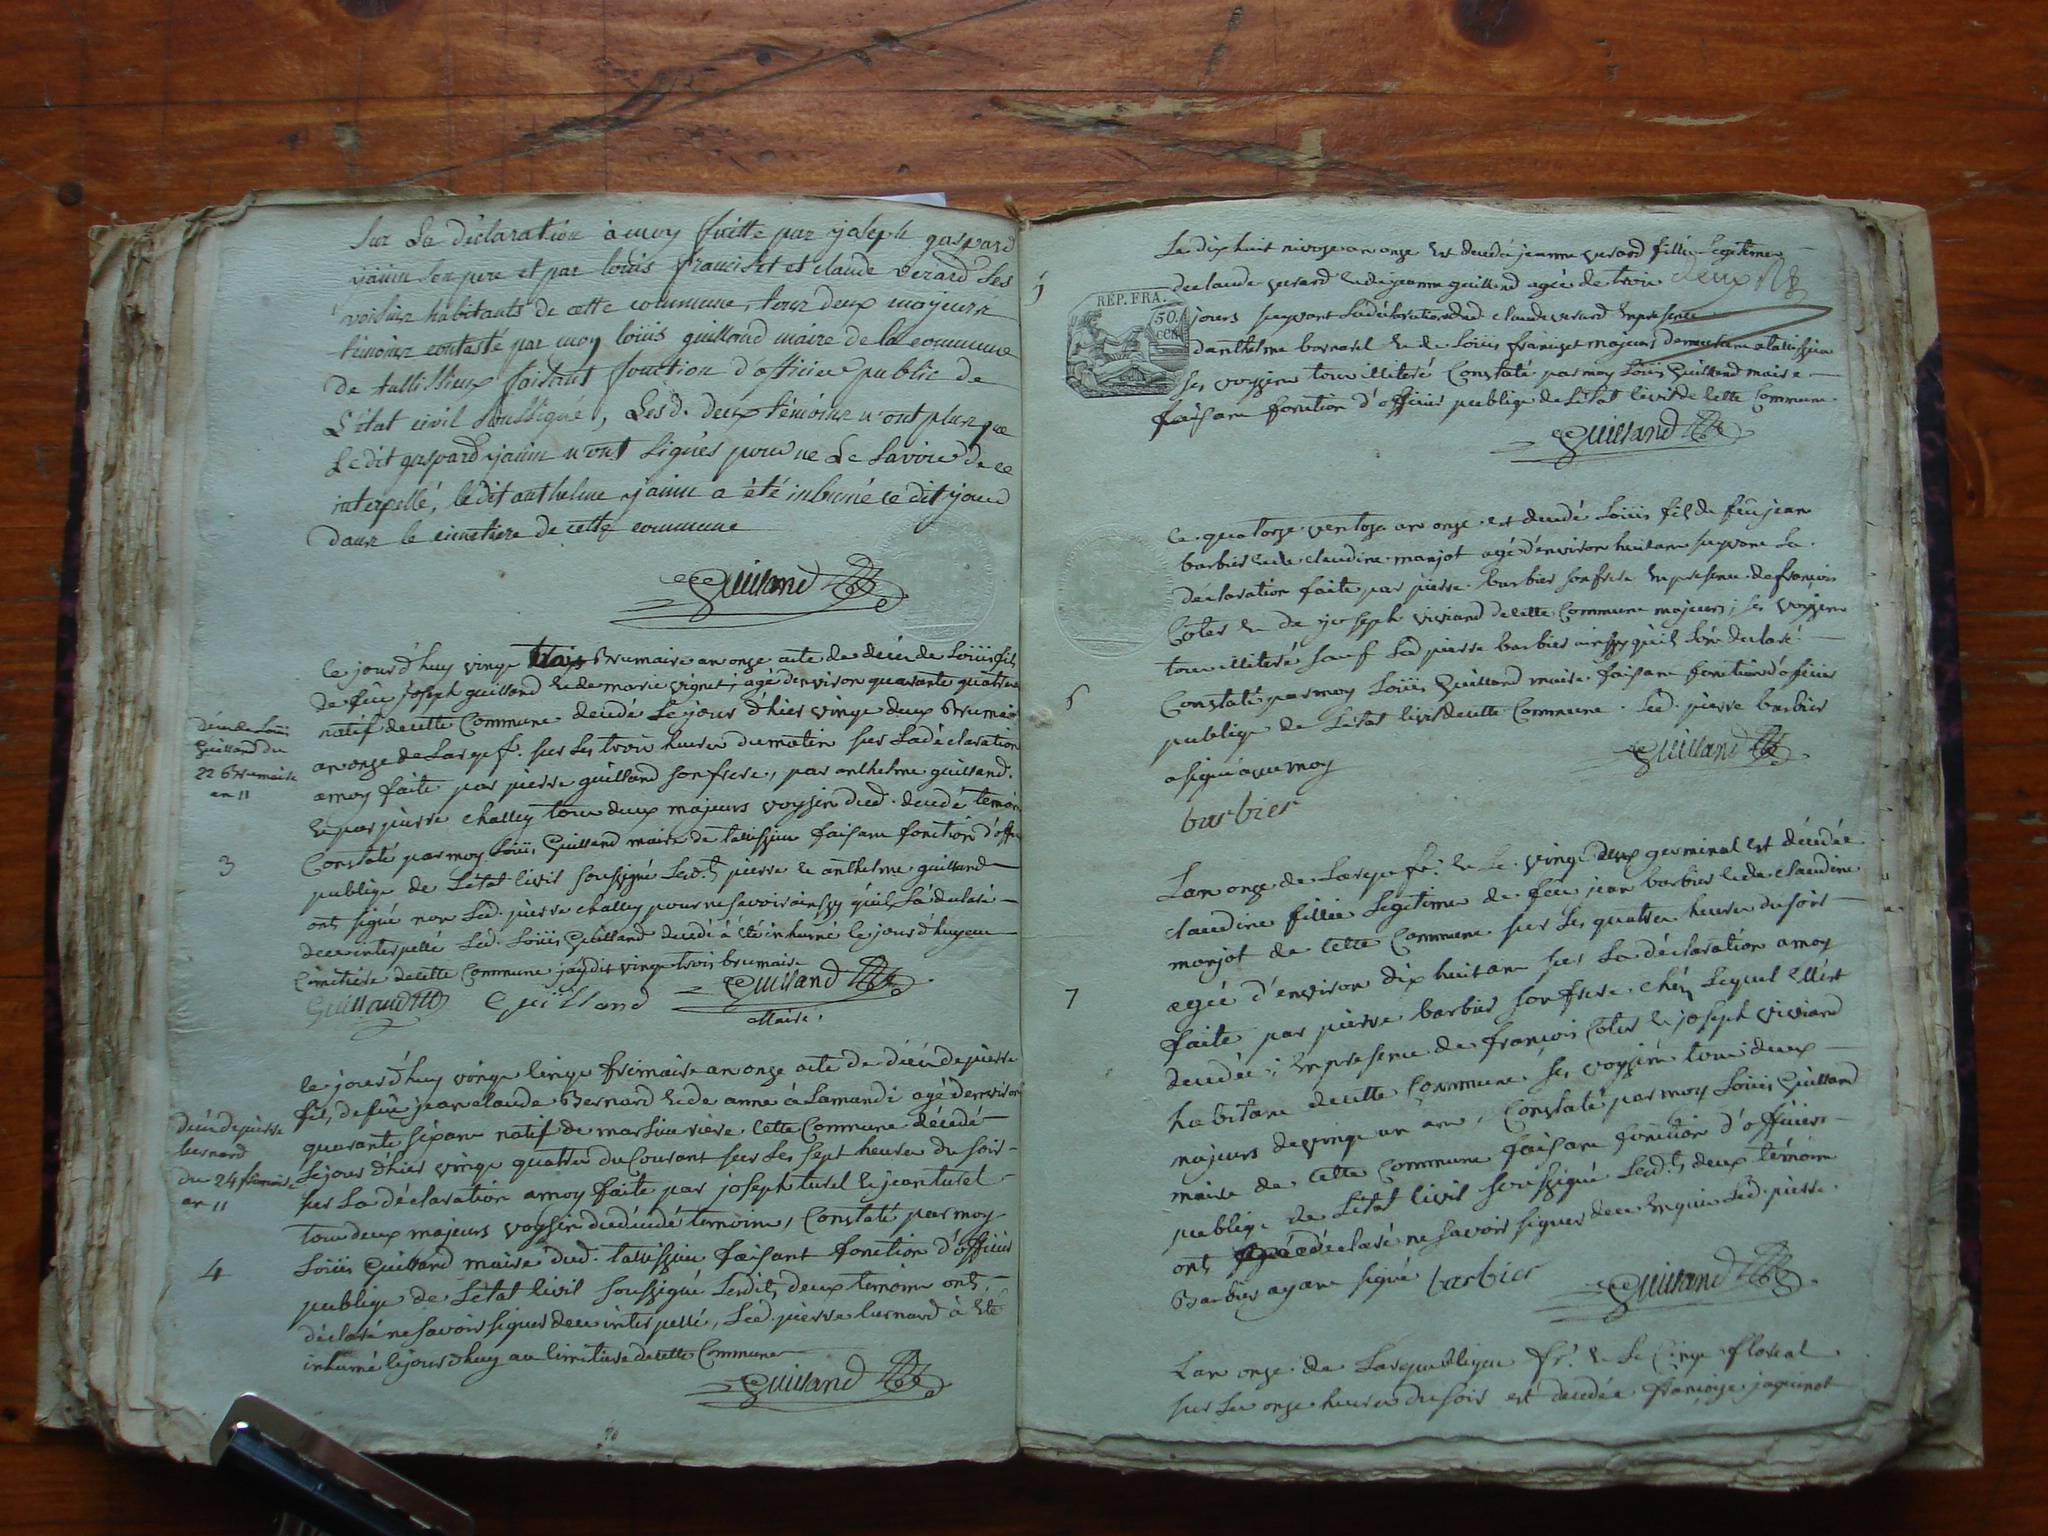 Sur La déclaration à moy faitte par joseph gaspard
janin son pere et par louis francilet et claude verard Ses
voisins habitants de cette commune, tous deux majeurs
témoins contasté par moy louis guilland maire de la commune
de tallissieux faisant fonction d'officier public de
L'état civil soussigné, Lesd. deux témoins n'ont plus que
Ledit gaspard janin n'ont signés pour ne Le Savoir de ce
interpellé, ledit anthelme janin a été inhumé ce dit jour
dans le cimetiere de cette commune
Guilland
Ce jourd'huy vingt trois Brumaire an onze acte de décé de Loüis fils
de feu joseph guilland & de marie vignet, agé d'environ quarante quatre
natif de cette Commune decedé Le jour d'hier vingt deux Brumaire
an onze de La rep. f. sur Les trois heures du matin sur La déclaration
amoy faite par pierre guilland son frere, par anthelme guilland
& par pierre challey tous deux majeurs voyssin dud. decedé temoin
Constaté par moy Loüis Guilland maire de talissieu faisant fonction d'offi
publiqe de Letat Civil soussigné Lesd.ts pierre & anthelme guilland
onts signé non Led. pierre challey pour ne savoir ainssy qu'il La déclaré
de ce interpellé Led. Loüis Guilland decedé à été inhumé le jour d'huy au
Cimetiére de cette Commune jaydit vingt trois brumaire
Guilland Guilland Guilland
Maire
décé de Loüis
Guilland du
22 Brumaire
an 11
3
le jour d'huy vingt cinq frimaire an onze acte de décé de pierre
fils de feu jean claude Bernard & de anne à Lamandi agé d'environ
quarante six ans natif de marsieu riére cette Commune décédé
Le jour d'hier vingt quatre du Courant sur Les sept heures du soir
sur La déclaration amoy faite par joseph turel & jean turel
tous deux majeurs voyssin du décedé temoins, Constaté par moy
Loüis Guilland maire dud. talissieu faisant fonction d'officier
publiqe de Letat Civil soussigné Lesdits deux temoins onts
déclaré ne savoir signer de ce interpellé, Led. pierre bernard à été
inhumé le jour d'huy au Cimetiere de cette Commune
Guilland
décé de pierre
bernard
du 24 frimaire
an 11
4
Le dix huit nivose an onze est decedé jeanne verard fillie Legitime
de claude verard & de jeanne guilland agée de trois deux
jours suyvant La déclaration dud. claude verard En presence
danthelme bernard & de Loüis francilet majeurs demeurant a talissieu
ses voyssins tous illiteré Constaté par moy Loüis Guilland maire
faisant fonction d'officier publiqe de Letat Civil de Cette Commune
Guilland
REP. FRA.
50.
cen.
Ce quatorze ventose an onze est decedé Loüis fils de feu jean
barbier & de claudine monjot agé d'environ huit ans suyvant La
déclaration faite par pierre barbier son frere En presence de françois
Coter & de joseph viviand de cette Commune majeurs, ses voyssins
tous illiteré sauf Led pierre barbier ainssy qu'ils L'on déclaré
Constaté par moy Loüis Guilland maire faisant fonction d'officier
publiqe de Letat Civil de cette Commune. Led. pierre barbier
a signé avec moy Guilland
barbier
6
Lan onze de La repu fr. & Le vingt deux germinal est décédée
claudine fillie Legitime de feu jean barbier & de claudine
monjot de Cette Commune sur Les quatre heures du soir
agée d'environ dix huit ans sur La déclaration amoy
faite par pierre barbier son frere chéz Lequel Ellest
decedée; En presence de françois Coter & joseph viviand
habitans de cette Commune ses voyssin tous deux
majeurs de vingt un ans, Constaté par moy Loüis Guilland
maire de Cette Commune faisant fonction d'officier
publiqe de Letat Civil soussigné Lesd.ts deux témoins
onts déclaré ne savoir signer de ce Enquis Led. pierre
Barbier ayant signé barbier Guilland
7
Lan onze de La republique fr. & Le Cinqe floreal
sur Les onze heures du soir est decedée françoise jaquinot